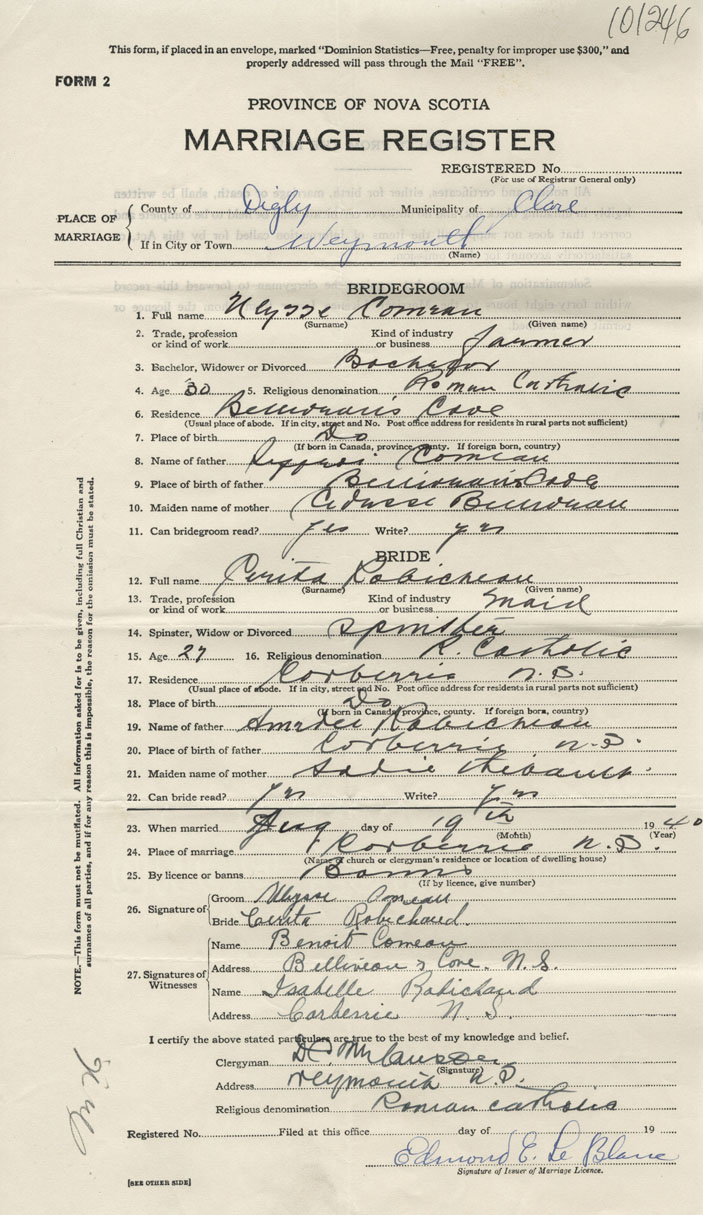 101246
This form, if placed in an envelope, marked "Dominion Statistics—Free, penalty for improper use $300," and
properly addressed will pass through the Mail "FREE".
FORM 2
PROVINCE OF NOVA SCOTIA
MARRIAGE REGISTER
REGISTERED No.
(For use of Registrar General only)
PLACE OF MARRIAGE
County of Digby Municipality of Clare
If in City or Town Weymouth
(Name)
BRIDEGROOM
1. Full name Ulysse Comeau
(Surname) (Given name)
2. Trade, profession or kind of work Kind of industry or business farmer
3. Bachelor, Widower or Divorced Bachelor
4. Age 30 5. Religious denomination Roman Catholic
6. Residence Belliveau's Cove
(Usual place of abode. If in city, street and No. Post office address for residents in rural parts not sufficient)
7. Place of birth Do
(If born in Canada, province, county. If foreign born, country)
8. Name of father Comeau
9. Place of birth of father Belliveau's Cove
10. Maiden name of mother Belliveau
11. Can bridegroom read? yes Write? yes
BRIDE
12. Full name Robicheau
(Surname) (Given name)
13. Trade, profession or kind of work Kind of industry or business maid
14. Spinster, Widow or Divorced Spinster
15. Age 27 16. Religious denomination R. Catholic
17. Residence Corberrie N.S.
(Usual place of abode. If in city, street and No. Post office address for residents in rural parts not sufficient)
18. Place of birth Do
(If born in Canada, province, county. If foreign born, country)
19. Name of father Amedee Robicheau
20. Place of birth of father Corberrie N.S.
21. Maiden name of mother Sadie Thibault
22. Can bride read? Yes Write? Yes
23. When married Aug day of 19th 1940
(Month) (Year)
24. Place of marriage Corberrie N.S.
(Name of church or clergyman's residence or location of dwelling house)
25. By licence or banns Banns
(If by licence, give number)
26. Signature of
Groom Ulysse Comeau
Bride Robichaud
27. Signatures of Witnesses
Name Benoit Comeau
Address Belliveau's Cove. N.S.
Name Isabelle Robichaud
Address Corberrie N.S.
I certify the above stated particulars are true to the best of my knowledge and belief.
Clergyman
(Signature)
Address Weymouth N.S.
Religious denomination Roman Catholic
Registered No. Filed at this office day of 19
Edmond E. Le Blanc
Signature of Issuer of Marriage Licence.
[SEE OTHER SIDE]
NOTE.—This form must not be mutilated. All information asked for is to be given, including full Christian and
surnames of all parties, and if for any reason this is impossible, the reason for the omission must be stated.